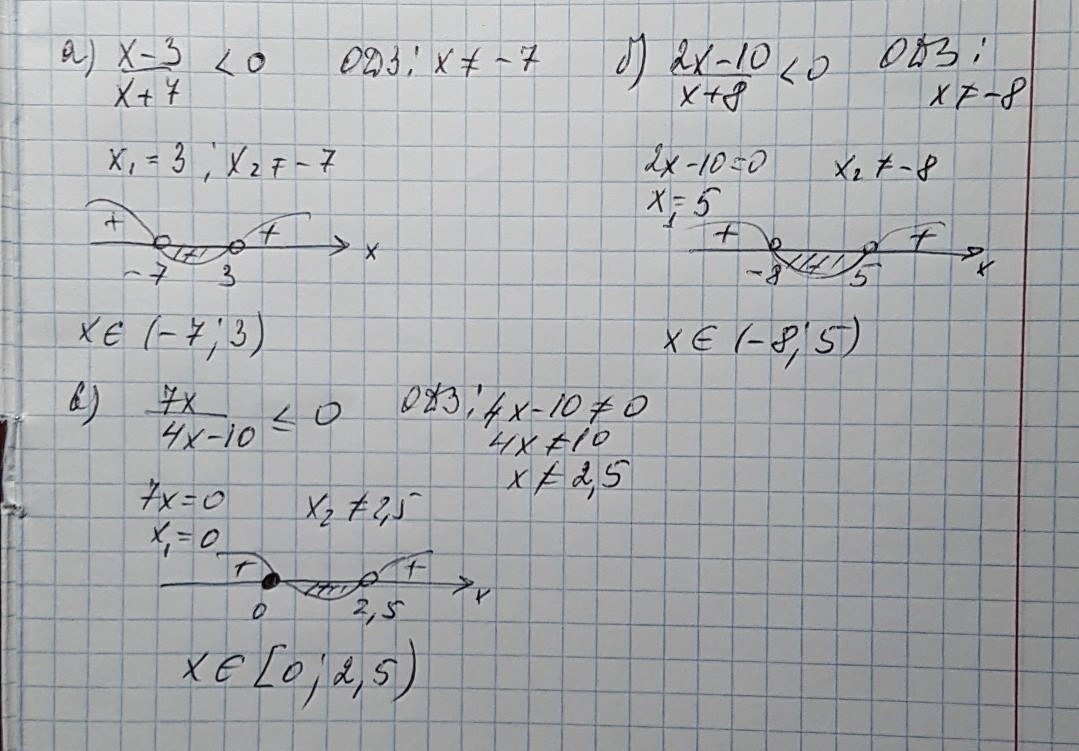 а) (x-3)/(x+7) < 0 ОДЗ: x ≠ -7
x₁ = 3 ; x₂ ≠ -7
+ - +
-7 3 x
x ∈ (-7; 3)
б) (2x-10)/(x+8) < 0 ОДЗ:
x ≠ -8
2x-10=0 x₂ ≠ -8
x₁ = 5
+ - +
-8 5 x
x ∈ (-8; 5)
в) 7x/(4x-10) ≤ 0 ОДЗ: 4x-10 ≠ 0
4x ≠ 10
x ≠ 2,5
7x=0 x₂ ≠ 2,5
x₁ = 0
+ - +
0 2,5 x
x ∈ [0; 2,5)